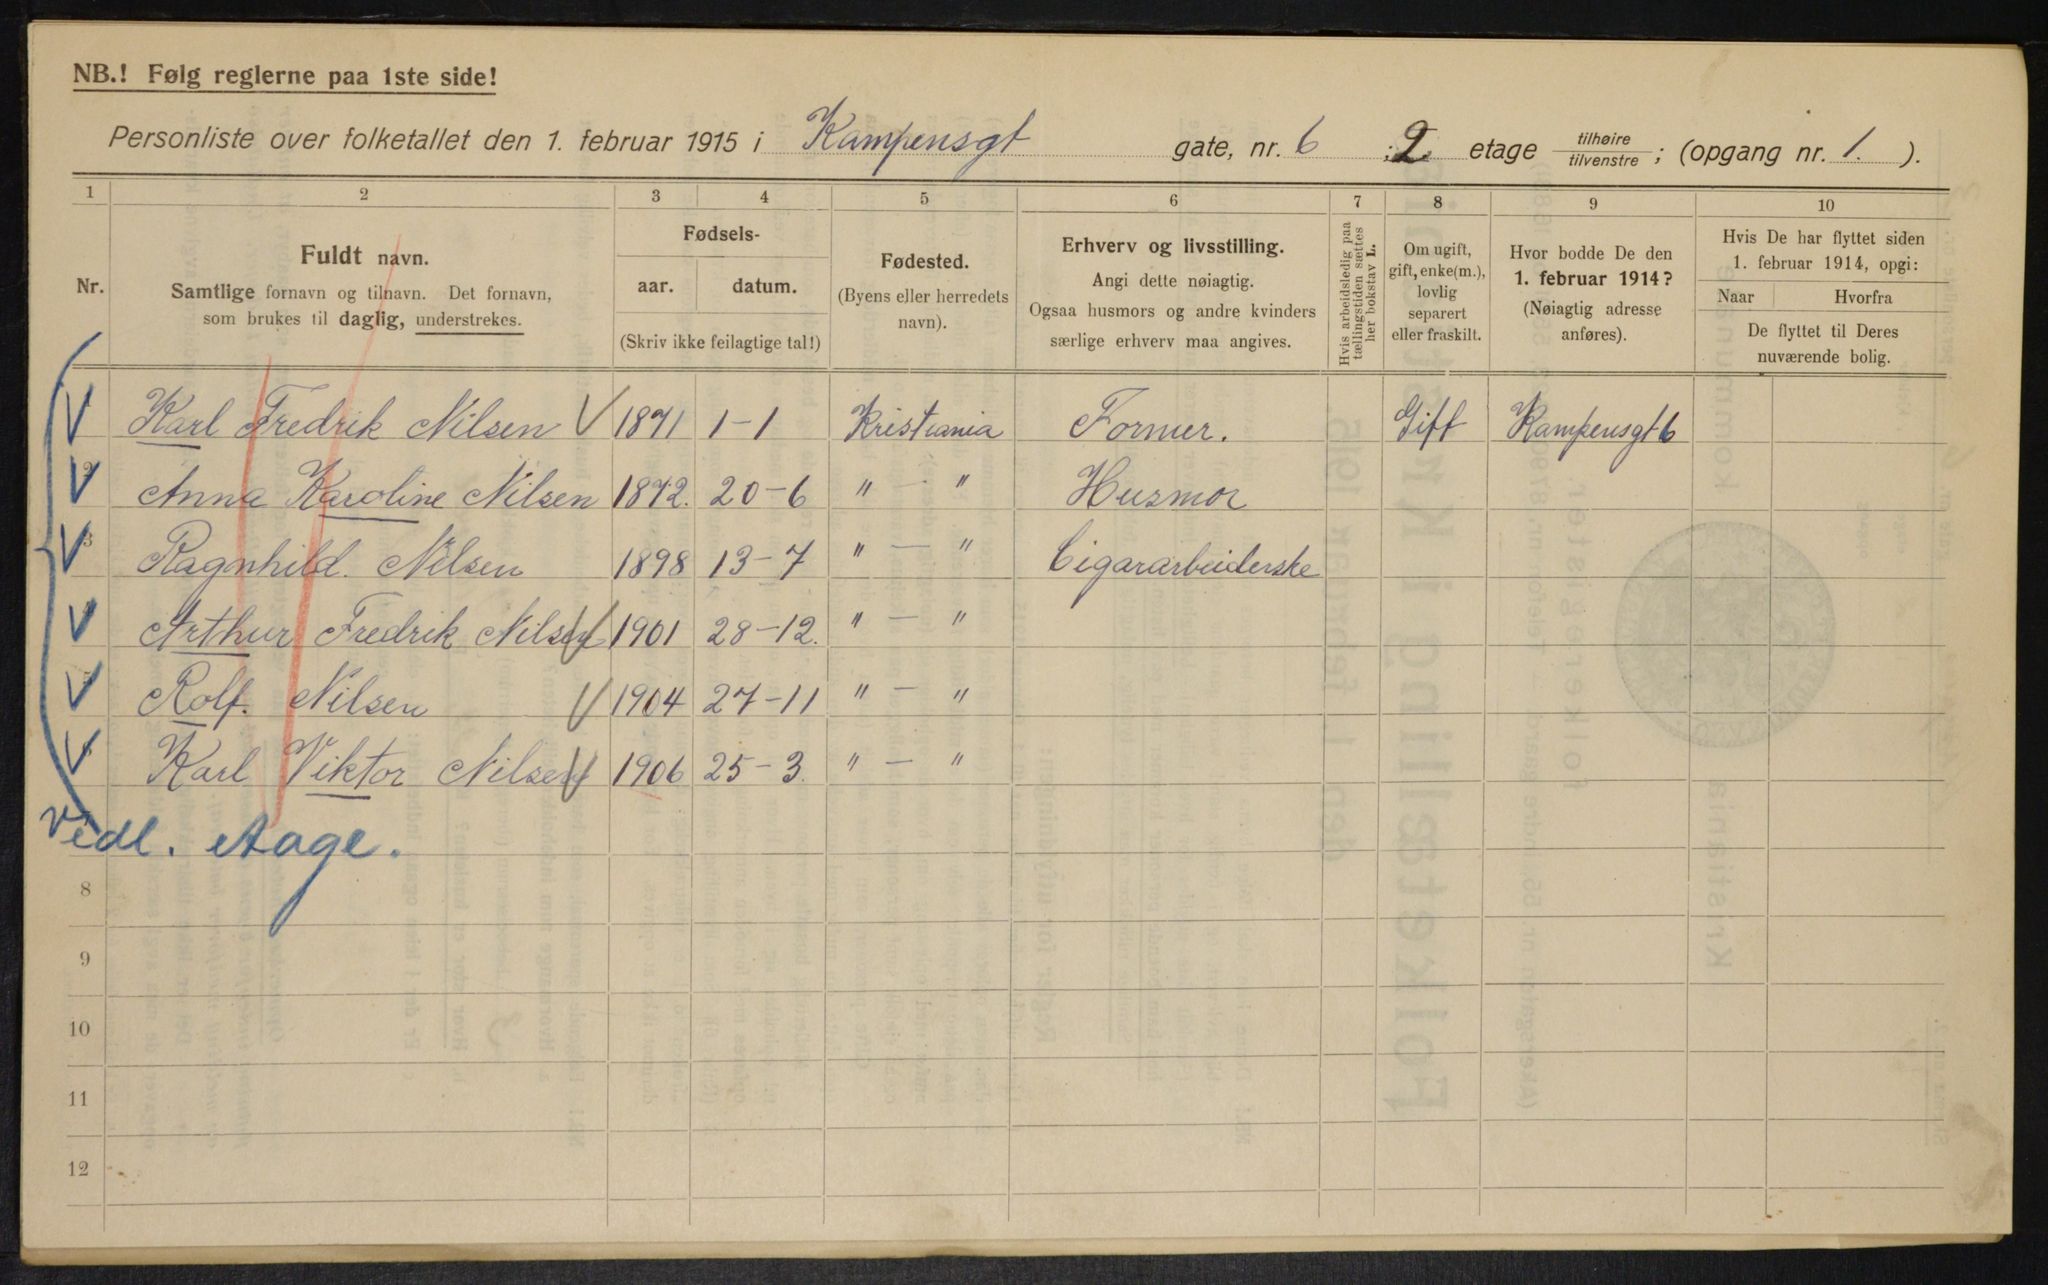 NB.! Følg reglerne paa 1ste side!
Personliste over folketallet den 1. februar 1915 i Kampensgt gate, nr. 6 ; 2. etage tilhøire / tilvenstre ; (opgang nr. 1. ).
1 2 3 4 5 6 7 8 9 10
Nr.
Fuldt navn.
Samtlige fornavn og tilnavn. Det fornavn,
som brukes til daglig, understrekes.
Fødsels-
aar. datum.
(Skriv ikke feilagtige tal!)
Fødested.
(Byens eller herredets
navn).
Erhverv og livsstilling.
Angi dette nøiagtig.
Ogsaa husmors og andre kvinders
særlige erhverv maa angives.
Hvis arbeidsledig paa
tællingstiden sættes
her bokstav L.
Om ugift,
gift, enke(m.),
lovlig
separert
eller fraskilt.
Hvor bodde De den
1. februar 1914?
(Nøiagtig adresse
anføres).
Hvis De har flyttet siden
1. februar 1914, opgi:
Naar Hvorfra
De flyttet til Deres
nuværende bolig.
Karl Fredrik Nilsen 1871 1-1 Kristiania Former. Gift Kampensgt 6
2 Anna Karoline Nilsen 1872. 20-6 " - " Husmor
3 Ragnhild. Nilsen 1898 13-7 " - " Cigararbeiderske
Arthur Fredrik Nilsen 1901 28-12. " - "
Rolf. Nilsen 1904 27-11 " - "
Karl Viktor Nilsen 1906 25-3. " - "
vedl. Aage.
8
9
10
11
12